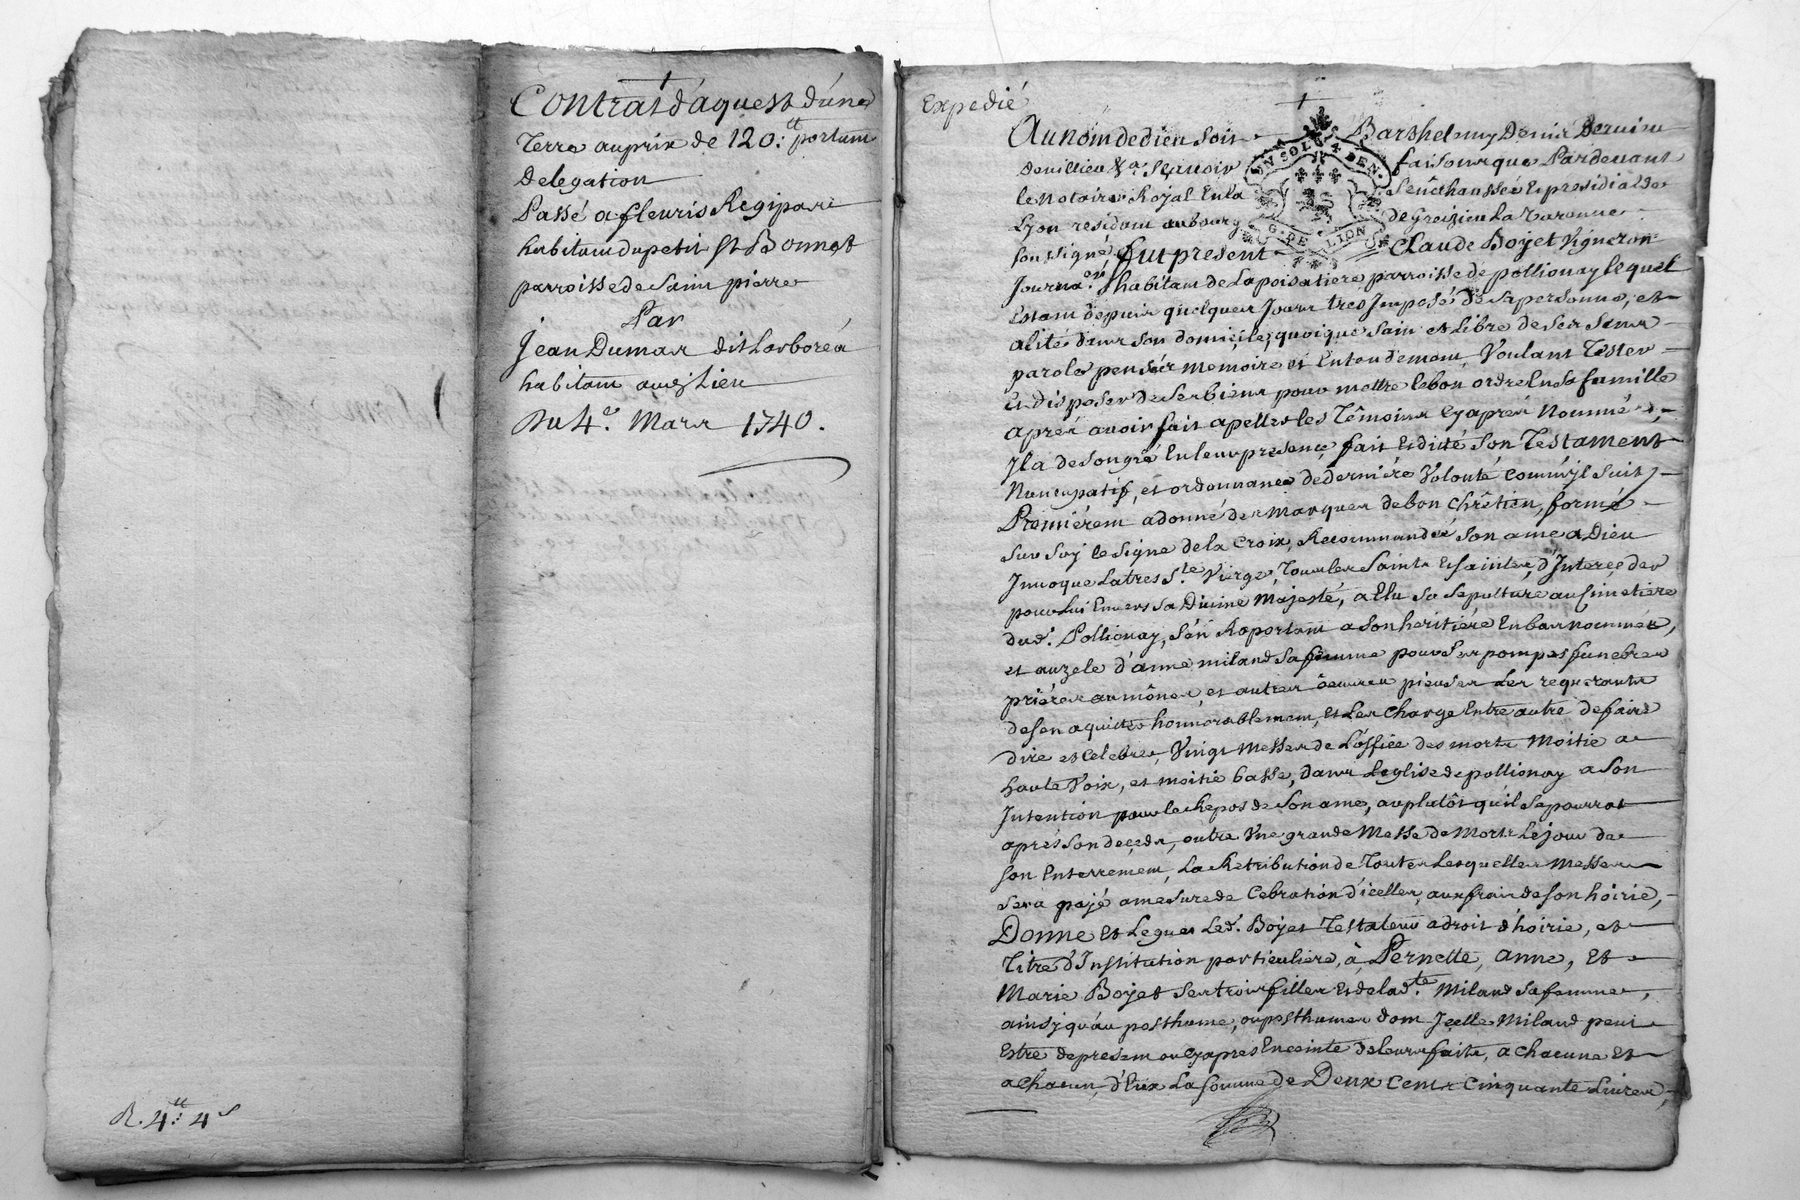 Contrat d'aquest d'une
Terre au prix de 120.tt portant
Delegation
Passé a fleuris Regipas
habitant du petit St Bonnet
parroisse de Saint pierre
Par
Jean Dumas dit Larborea
habitant audj Lieu
Du 4e. Mars 1740.
R. 4tt: 4s
Expedié
Au nom de dieu soit
Barthelemy Denis Deruine
UN SOL 4 DEN.
G. DE LION
Deuillieu &a. Sçauoir faisons que Pardeuant
le Notaire Royal En la Senêchaussée Et presidial de
Lyon residant au bourg de Greizieu La Varenne
sousigné, fut present Claude Boyet Vigneron
Journa.er habitant de Lapoisatiere, parroisse de pollionay lequel
Estant depuis quelques Jours tres Jmposé de sa personne, et
alité dans son domicile, quoique sain et Libre de ses sens
parole pensée memoire et Entendement, Voulant Tester
Et disposer de ses biens pour mettre le bon ordre En sa famille
aprés auoir fait apeller les Têmoins Cy aprés Nommés,
Jl a de son gré En leur presence, fait Et dicté Son Testament
Nuncupatif, et ordonnance de derniére Volonté comm'jl suit,
Premiérem adonné des Marques de bon Chrêtien, formé
sur soy le signe de la Croix, Recommandé son ame a Dieu
Jnuoqué La tres Ste Vierge, Tous les Saints Et saintes, d'Interceder
pour Lui Enuers sa Diuine Majesté, a Elu sa sepulture au simetiére
dud. Pollionay, s'en Raportant a son heritiére En bas nommée,
et au zele d'anne miland sa femme pour ses pompes funebres
priéres aumônes, et autres oeuures pieuses Les requerants
de s'en aquiter honnorablement, Et Les Charge Entre autre de faire
dire et Celebrer, Vingt Messes de L'office des morts Moitié a
haute Voix, et moitié basse, dans Leglise de pollionay a son
Intention pour le Repos de son ame, au plutôt qu'il se pourra
aprés son decedz, outre Vne grande Messe de Morts Le jour de
son Enterrement, La Retribution de Toutes Lesquelles Messes
sera payé a mesure de Cebration d'icelles, aux frais de son hoirie,
Donne Et Legue Led. Boyet Testateur a droit d'hoirie, et
Titre d'Institution particuliere, à Pernette, Anne, Et
Marie Boyet ses trois filles Et de lad.te Miland sa femme,
ainsy qu'au posthume, ou posthumes dont Jcelle Miland peut
Estre de present ou Cy apres Enceinte de leurs faits, a Chacune Et
a Chacun, d'Eux La somme de Deux cents Cinquante Liures,